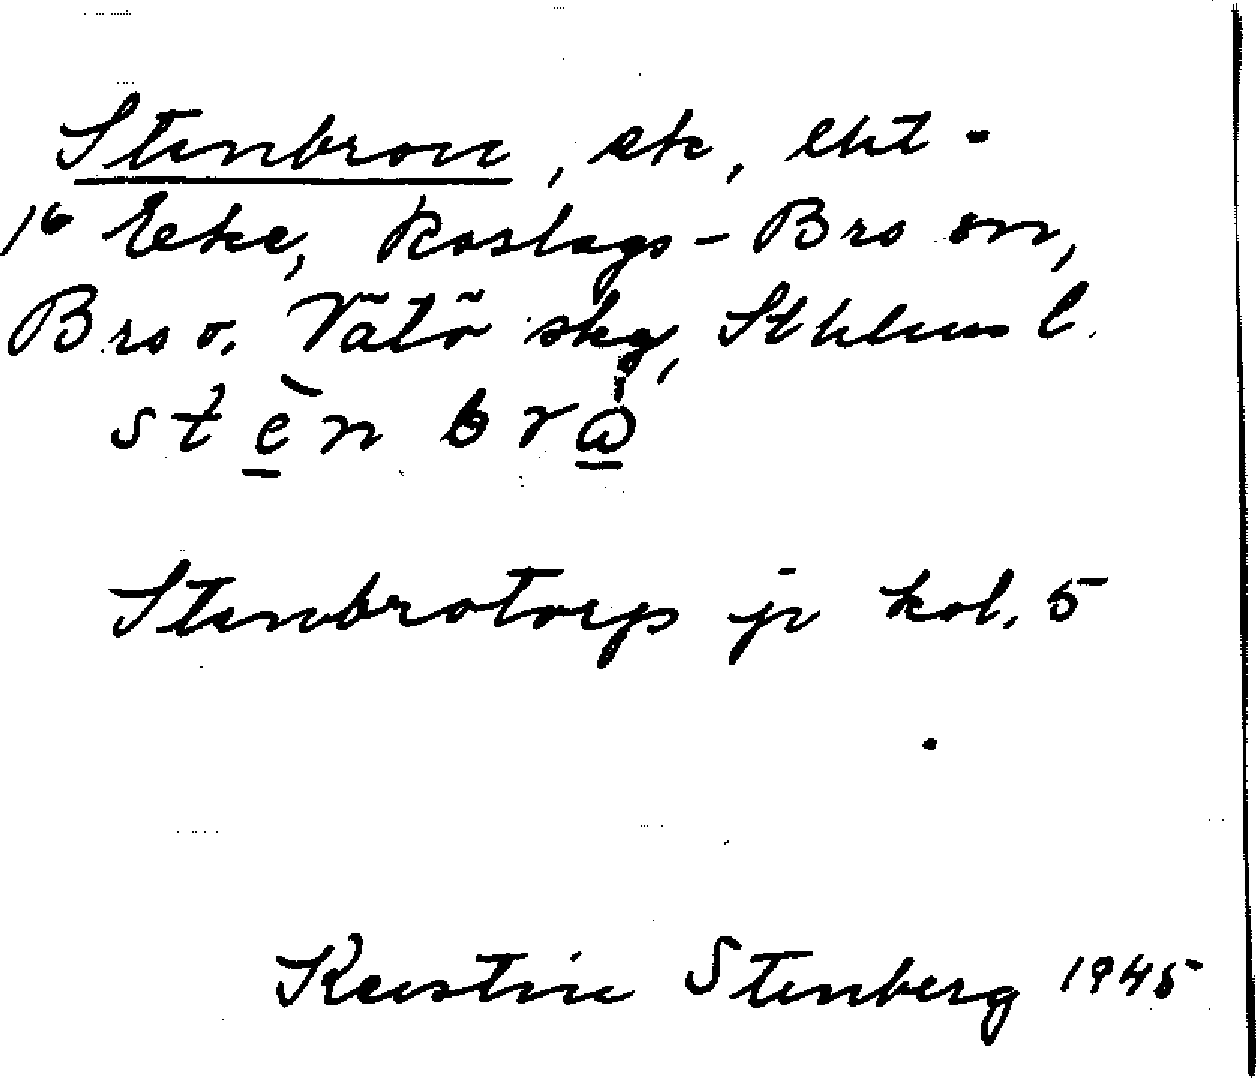 Stenbron, ek, lht -
1⁶ Eke, Roslags-Bro sn,
Bro o. Vätö skg, Sthlms l.
stènbrå
Stenbrotorp jr kol. 5
Kerstin Stenberg 1945